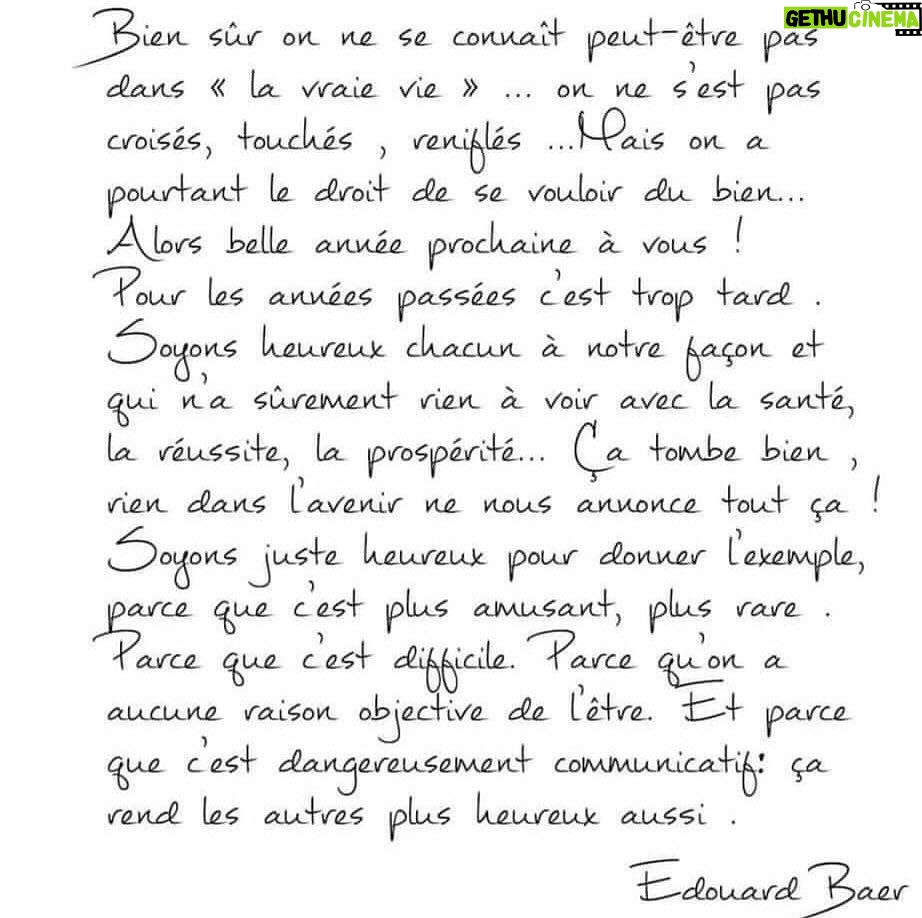 GETHU CINEMA
Bien sûr on ne se connaît peut-être pas
dans « la vraie vie » ... on ne s'est pas
croisés, touchés , reniflés ...Mais on a
pourtant le droit de se vouloir du bien...
Alors belle année prochaine à vous !
Pour les années passées c'est trop tard .
Soyons heureux chacun à notre façon et
qui n'a sûrement rien à voir avec la santé,
la réussite, la prospérité... Ça tombe bien ,
rien dans l'avenir ne nous annonce tout ça !
Soyons juste heureux pour donner l'exemple,
parce que c'est plus amusant, plus rare .
Parce que c'est difficile. Parce qu'on a
aucune raison objective de l'être. Et parce
que c'est dangereusement communicatif: ça
rend les autres plus heureux aussi .
Edouard Baer